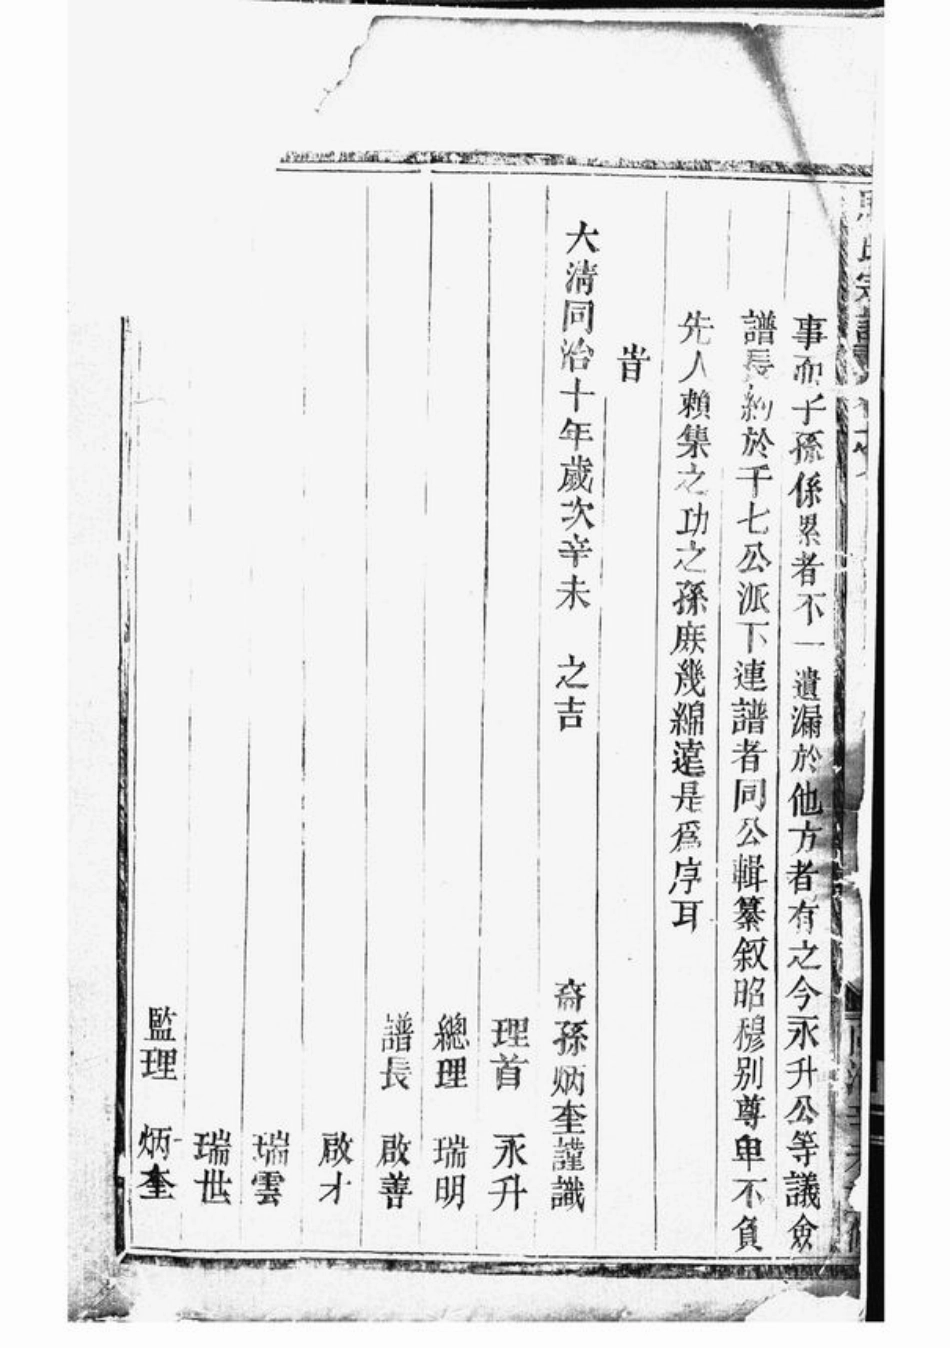 氏宗譜
事而子孫係累者不一遺漏於他方者有之今永升公等議僉
譜長約於千七公派下連譜者同公輯纂叙昭穆别尊卑不負
先人賴集之功之孫庶幾綿遠是爲序耳
旹
大清同治十年歲次辛未 之吉 裔孫炳奎謹識
理首 永升
總理 瑞明
譜長 啟善
啟才
瑞雲
瑞世
監理 炳奎